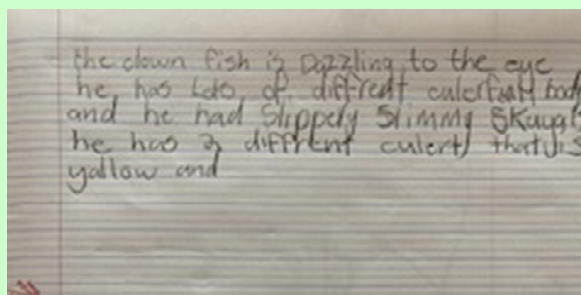 the clown fish is Dazzling to the eye
he has Lots of diffrent culerfull body
and he had Slippely Slimmy Skayals
he has 3 diffrent culerts that is
yallow and